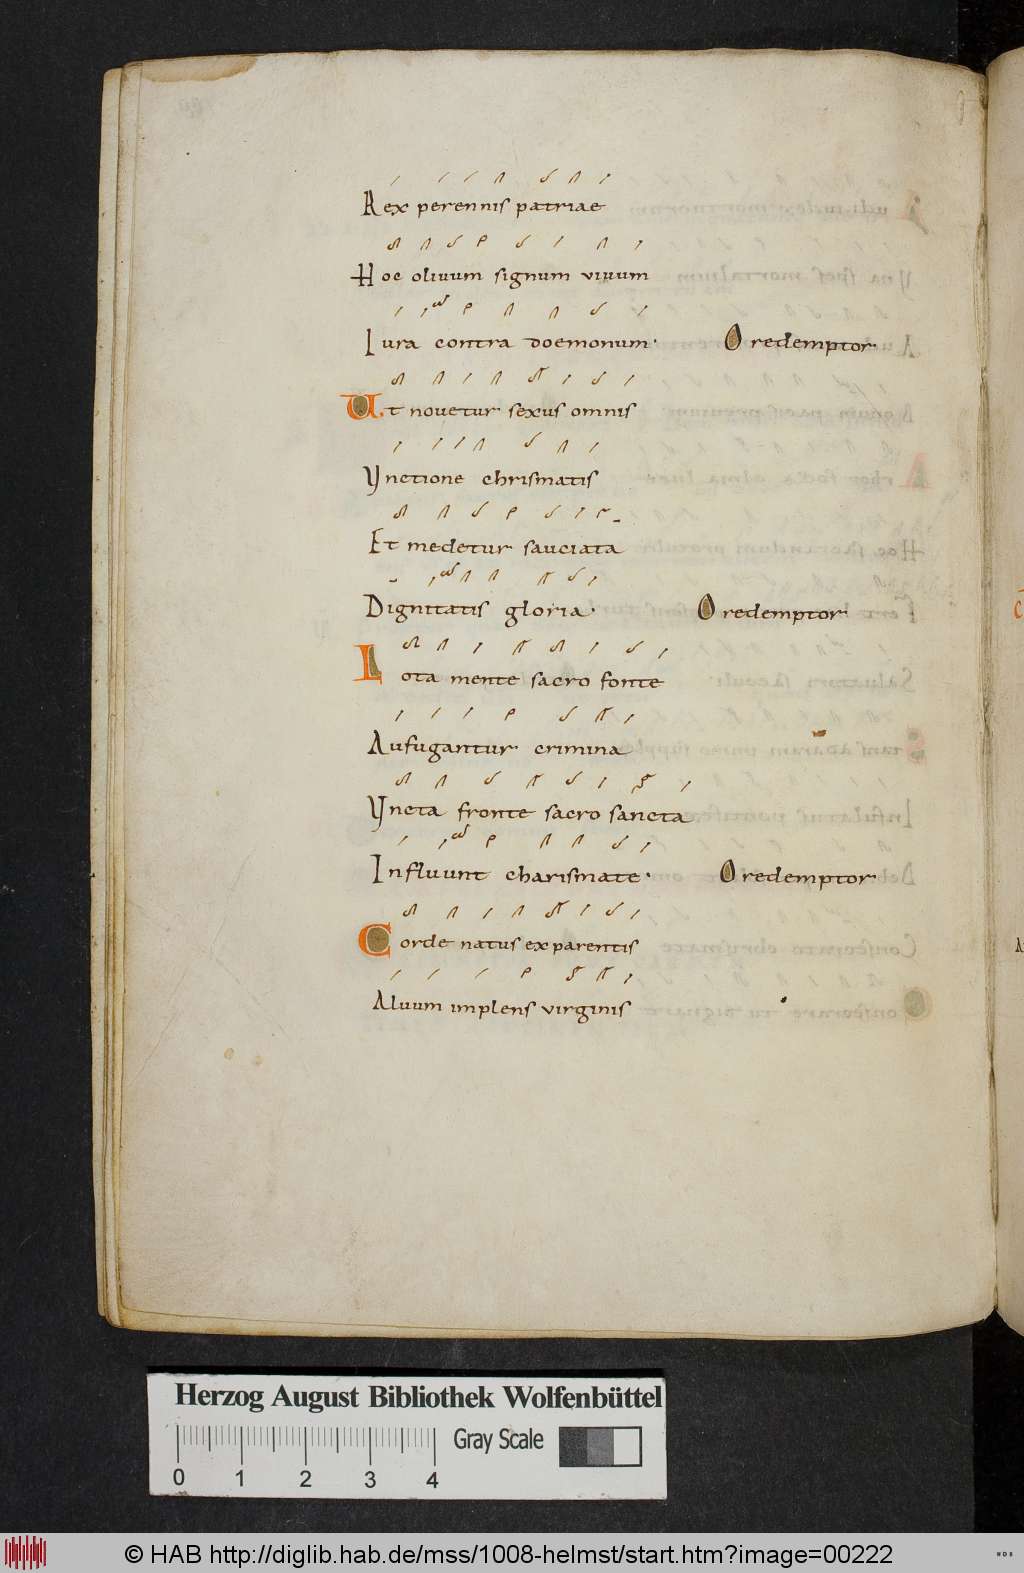 Rex perennis patriae
Hoc oliuum signum uiuum
Iura contra doemonum· O redemptor
Ut nouetur sexus omnis
Ynctione chrismatis
Et medetur sauciata
Dignitatis gloria· O redemptor
Lota mente sacro fonte
Aufugantur crimina
Yncta fronte sacro sancta
Influunt charismate· O redemptor
Corde natus ex parentis
Aluum implens virginis
Herzog August Bibliothek Wolfenbüttel
Gray Scale
0 1 2 3 4
© HAB http://diglib.hab.de/mss/1008-helmst/start.htm?image=00222